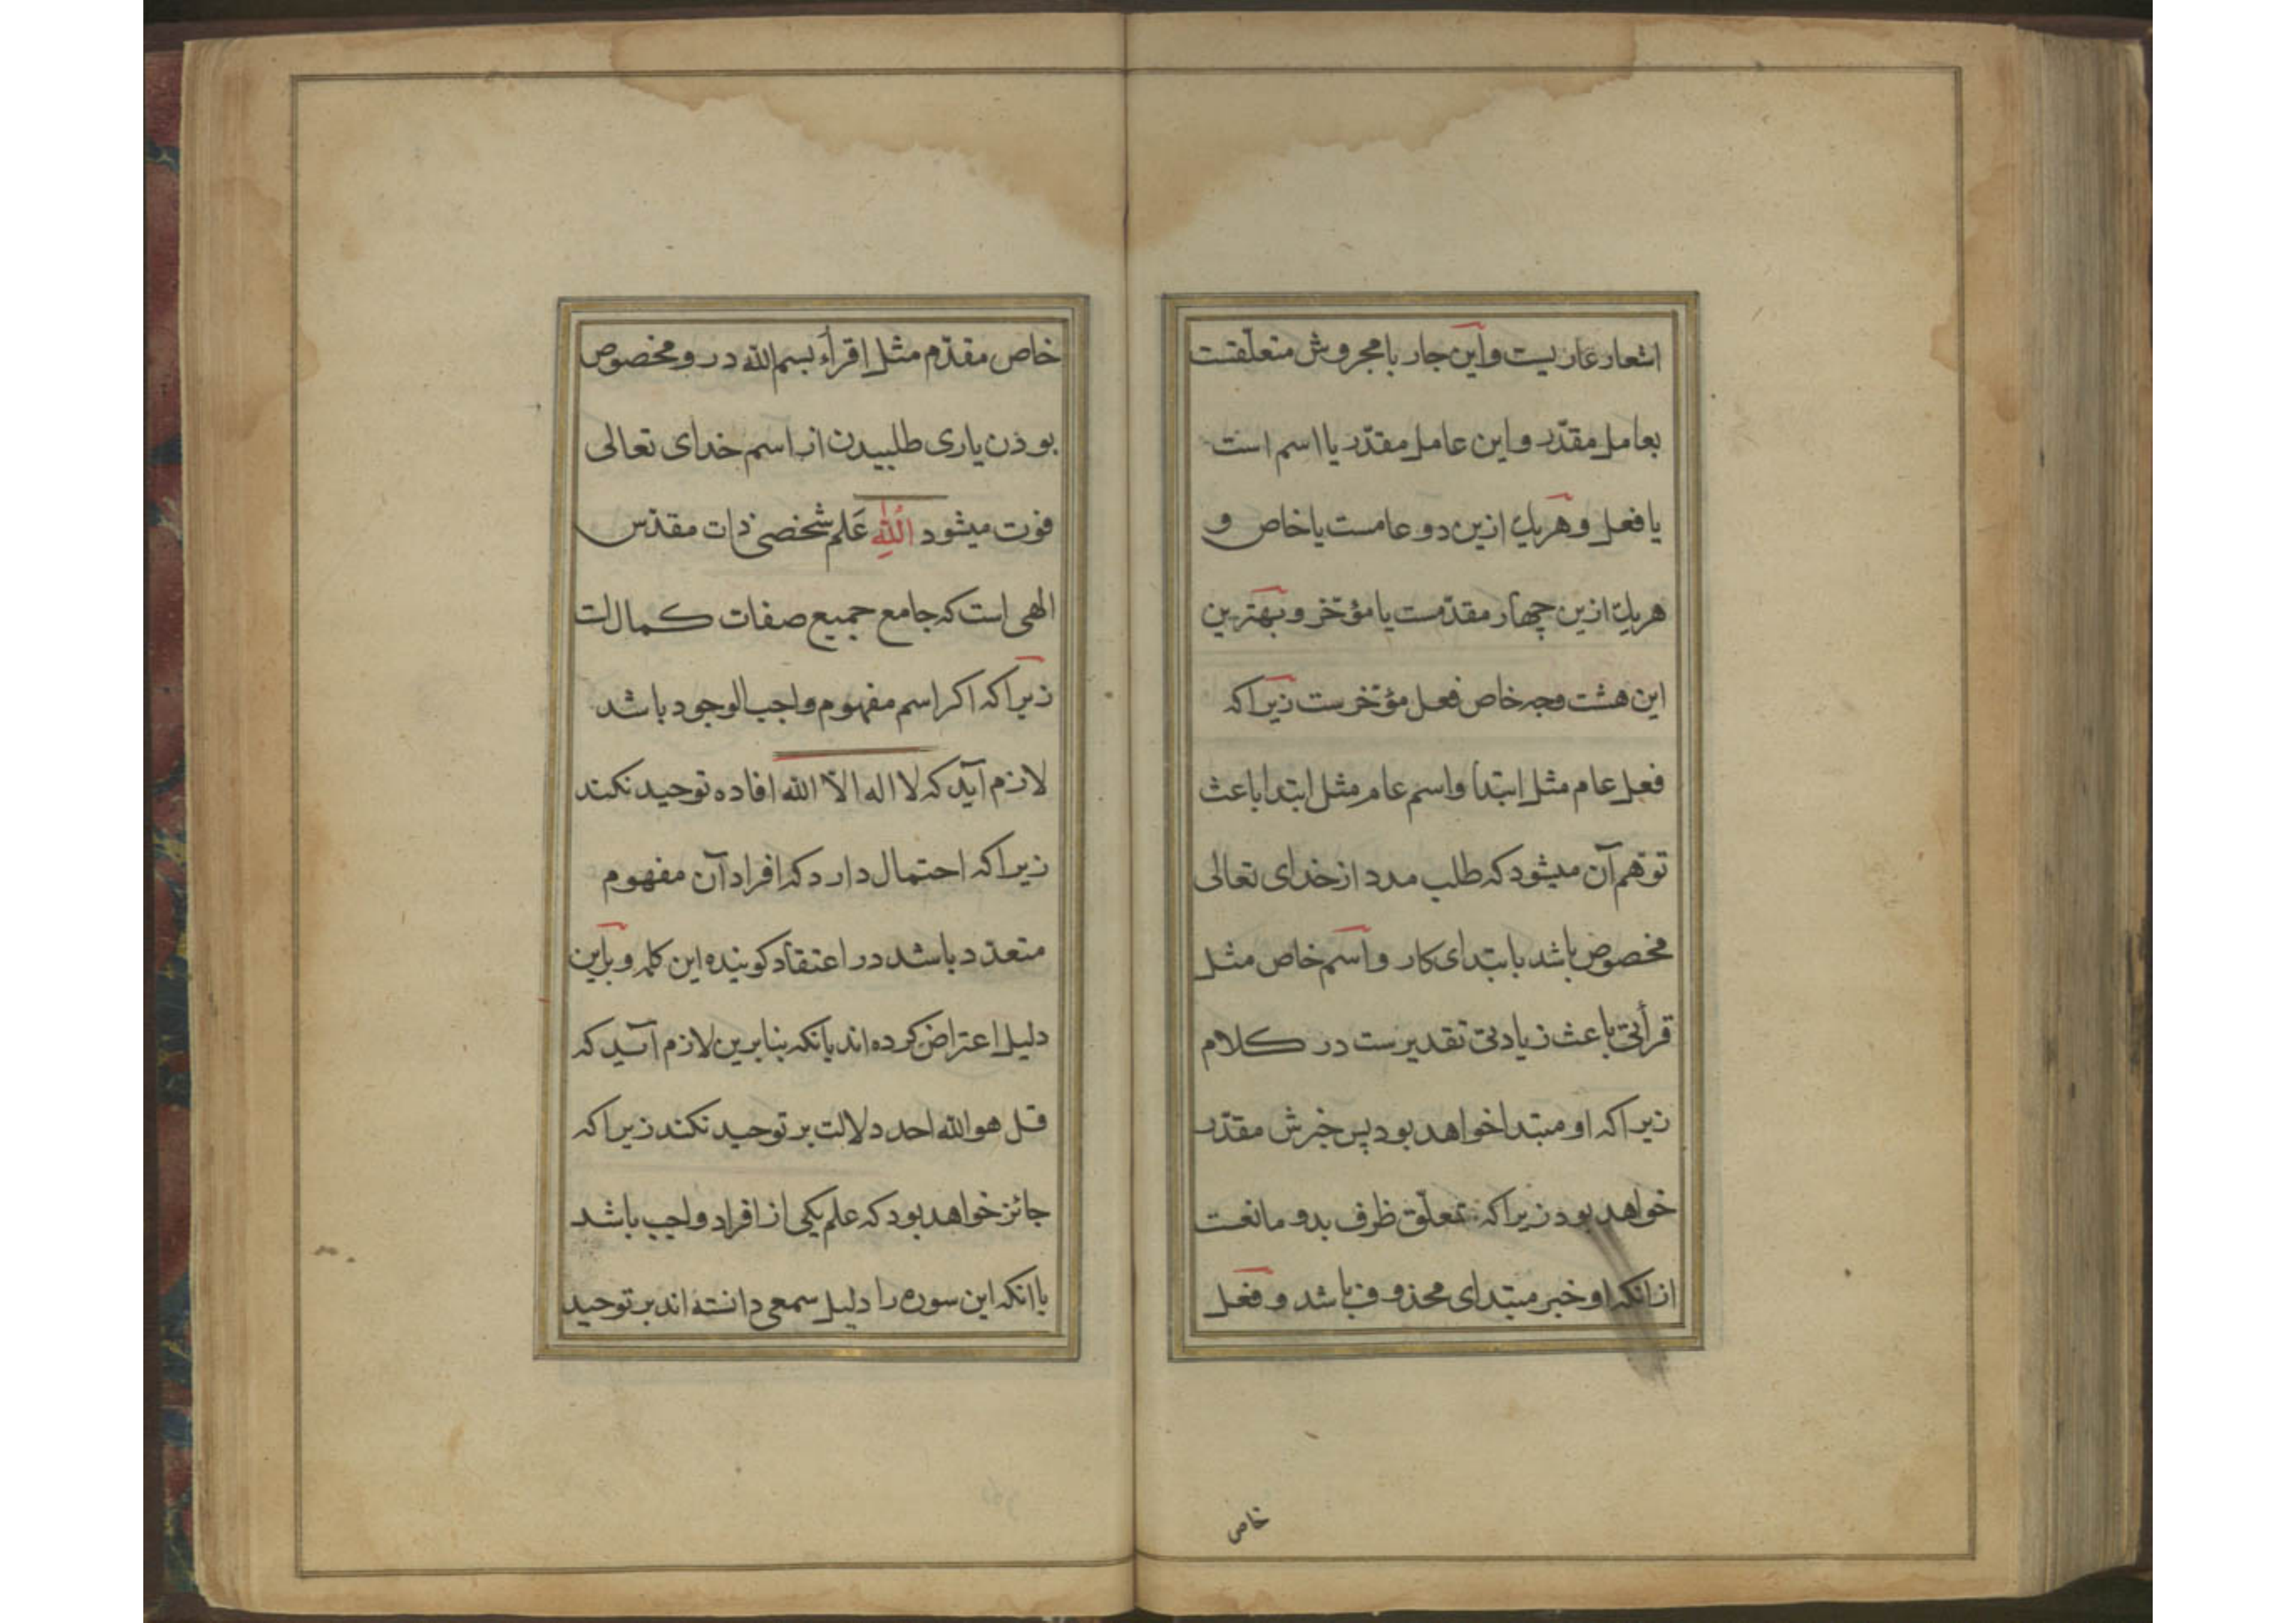 اشعار عاریست و این جار با مجروش متعلّقست
بعامل مقدّر و این عامل مقدّر یا اسم است
یا فعل و هریك ازین دو عامست یا خاص و
هریك ازین چهار مقدّمست یا مؤخّر و بهترین
این هشت وجه خاص فعل مؤخّرست زیراکه
فعل عام مثل ابتدأ واسم عام مثل ابتدا باعث
توهّم آن میشود که طلب مدد از خدای تعالی
مخصوص باشد بابتدای کار و اسم خاص مثل
قرأتی باعث زیادتی تقدیرست در کلام
زیراکه او مبتدا خواهد بود پس خبرش مقدّر
خواهد بود زیراکه تعلّق ظرف بدو مانعست
ازانکه او خبر مبتدای محذوف باشد و فعل
خاص
خاص مقدّم مثل اقرأ بسم الله درو مخصوص
بوذن یاری طلبیدن از اسم خدای تعالی
فوت میشود اللّٰه عَلم شخصی ذات مقدّس
الهی است که جامع جمیع صفات کمالات
زیراکه اکر اسم مفهوم واجب الوجود باشد
لازم آید که لا اله الّا الله افاده توحید نکند
زیراکه احتمال دارد که افراد آن مفهوم
متعدّد باشد در اعتقاد کوینده این کلمه و براین
دلیل اعتراض کرده اند بانکه بنابرین لازم آید که
قل هو الله احد دلالت بر توحید نکند زیراکه
جائز خواهد بود که علم یکی از افراد واجب باشد
با انکه این سوره را دلیل سمعی دانسته اند بر توحید